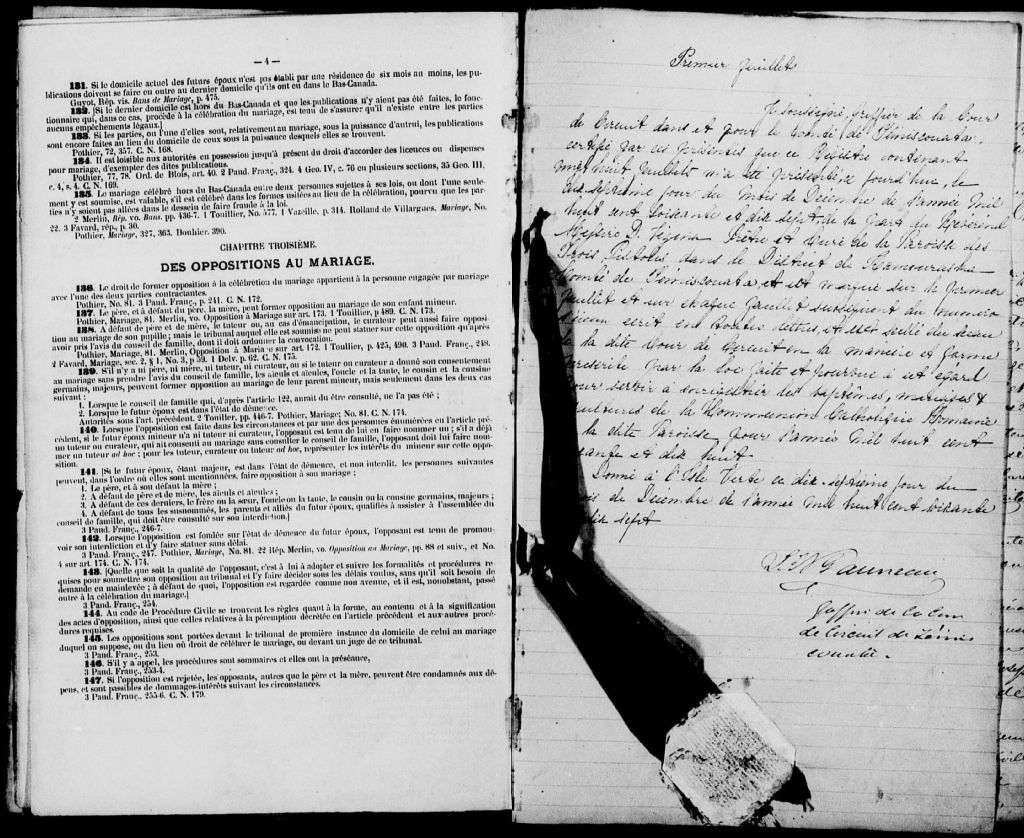 — 4 —
131. Si le domicile actuel des futurs époux n'est pas établi par une résidence de six mois au moins, les pu-
blications doivent se faire en outre au dernier domicile qu'ils ont eu dans le Bas-Canada.
Guyot, Rép. vis. Bans de Mariage, p. 475.
132. [Si le dernier domicile est hors du Bas-Canada et que les publications n'y aient pas été faites, le fonc-
tionnaire qui, dans ce cas, procède à la célébration du mariage, est tenu de s'assurer qu'il n'existe entre les parties
aucuns empêchements légaux.]
133. Si les parties, ou l'une d'elles sont, relativement au mariage, sous la puissance d'autrui, les publications
sont encore faites au lieu du domicile de ceux sous la puissance desquels elles se trouvent.
Pothier, 72, 357. C. N. 168.
134. Il est loisible aux autorités en possession jusqu'à présent du droit d'accorder des licences ou dispenses
pour mariage, d'exempter des dites publications.
Pothier, 77, 78. Ord. de Blois, art. 40. 2 Pand. Franç., 324. 4 Geo. IV, c. 76 en plusieurs sections, 35 Geo. III,
c. 4, s. 4. C. N. 169.
135. Le mariage célébré hors du Bas-Canada entre deux personnes sujettes à ses lois, ou dont l'une seule-
ment y est soumise, est valable, s'il est célébré dans les formes usitées au lieu de la célébration, pourvu que les par-
ties n'y soient pas allées dans le dessein de faire fraude à la loi.
2 Merlin, Rép. vo. Bans. pp. 436-7. 1 Touillier, No. 577. 1 Vazeille, p. 314. Rolland de Villargues. Mariage, No.
22. 3 Favard, rép., p. 30.
Pothier, Mariage, 327, 363. Bouhier. 390.
CHAPITRE TROISIÈME.
DES OPPOSITIONS AU MARIAGE.
136. Le droit de former opposition à la célébration du mariage appartient à la personne engagée par mariage
avec l'une des deux parties contractantes.
Pothier, No. 81. 3 Pand. Franç., p. 241. C. N. 172.
137. Le père, et à défaut du père. la mère, peut former opposition au mariage de son enfant mineur.
Pothier, Mariage, 81. Merlin, vo. Opposition à Mariage sur art. 173. 1 Touillier, p 489. C. N. 173.
138. A défaut de père et de mère, le tuteur ou, au cas d'émancipation, le curateur peut aussi faire opposi-
tion au mariage de son pupille; mais le tribunal auquel elle est soumise ne peut statuer sur cette opposition qu'après
avoir pris l'avis du conseil de famille, dont il doit ordonner la convocation.
Pothier, Mariage, 81. Merlin, Opposition à Mariage sur art. 172. 1 Toullier, p. 425, 490. 3 Pand. Franç., 248.
2 Favard, Mariage, sec. 2, § 1, No. 3, p 59. 1 Delv. p. 62. C. N. 175.
139. S'il n'y a ni père, ni mère, ni tuteur, ni curateur, ou si le tuteur ou curateur a donné son consentement
au mariage sans prendre l'avis du conseil de famille, les aïeuls et aïeules, l'oncle et la tante, le cousin et la cousine
germains, majeurs, peuvent former opposition au mariage de leur parent mineur, mais seulement dans les deux cas
suivant :
1. Lorsque le conseil de famille qui, d'après l'article 122, aurait du être consulté, ne l'a pas été ;
2. Lorsque le futur époux est dans l'état de démence.
Autorités sous l'art. précédent. 2 Tonller, pp. 446-7. Pothier, Mariage; No. 81. C. N. 174.
140. Lorsque l'opposition est faite dans les circonstances et par une des personnes énumérées en l'article pré-
cédent, si le futur époux mineur n'a ni tuteur ni curateur, l'opposant est tenu de lui en faire nommer un ; s'il a déjà
un tuteur ou curateur, qui ait consenti au mariage sans consulter le conseil de famille, l'opposant doit lui faire nom-
mer un tuteur ad hoc ; pour les tuteur, curateur ou tuteur ad hoc, représenter les intérêts du mineur sur cette oppo-
sition.
141. [Si le futur époux, étant majeur, est dans l'état de démence, et non interdit. les personnes suivantes
peuvent, dans l'ordre où elles sont mentionnées, faire opposition à son mariage ;
1. Le père, et à son défaut la mère ;
2. A défaut de père et de mère, les aïeuls et aïeules ;
3. A défaut de ces derniers, le frère ou la sœur, l'oncle ou la tante, le cousin ou la cousine germains, majeurs ;
4. A défaut de tous les susnommés, les parents et alliés du futur époux, qualifiés à assister à l'assemblée du
conseil de famille, qui doit être consulté sur son interdiction.]
3 Pand. Franç., 246-7.
142. Lorsque l'opposition est fondée sur l'état de démence du futur époux, l'opposant est tenu de promou-
voir son interdiction et d'y faire statuer sans délai.
3 Pand. Franç., 247. Pothier, Mariage, No. 81. 22 Rép Merlin, vo. Opposition au Mariage, pp. 88 et suiv., et No.
4 sur art. 174. C. N. 174.
143. [Quelle que soit la qualité de l'opposant, c'est à lui à adopter et suivre les formalités et procédures re-
quises pour soumettre son opposition au tribunal et l'y faire décider sous les délais voulus, sans qu'il soit besoin de
demande en mainlevée ; à défaut de quoi, l'opposition est regardée comme non avenue, et il est, nonobstant, passé
outre à la célébration du mariage.]
3 Pand. Franç., 254.
144. Au code de Procédure Civile se trouvent les règles quant à la forme, au contenu et à la signification
des actes d'opposition, ainsi que celles relatives à la péremption décrétée en l'article précédent et aux autres procé-
dures requises.
145. Les oppositions sont portées devant le tribunal de première instance du domicile de celui au mariage
duquel on suppose, ou du lieu où doit être célébrer le mariage, ou devant un juge de ce tribunal.
3 Pand. Franç., 253.
146. S'il y a appel, les procédures sont sommaires et elles ont la préséance,
3 Pand. Franç., 253-4.
147. Si l'opposition est rejetée, les opposants, autres que le père et la mère, peuvent être condamnés aux dé-
pens, et sont passibles de dommages-intérêts suivant les circonstances.
3 Pand. Franç., 255-6. C. N. 179.
Premier feuillet
Je soussigné, greffier de la Cour
de Circuit dans et pour le Comté de Témiscouata
certifie par ces présentes que ce Régistre contenant
vingt huit feuillets m'a été présenté, ce jourd'hui, le
dix septième jour du mois de Décembre de l'année Mil
huit cent soixante et dix sept, de la part du Révérend
Messire D. Vézina Prêtre et Curé de la Paroisse des
Trois Pistoles dans le District de Kamouraska
Comté de Témiscouata et est marqué sur le premier
feuillet et sur chaque feuillet subséquent du numéro
écrit en toutes lettres, et est scellé du sceau
de la dite Cour de Circuit en la manière et forme
prescrite par la loi faite et pourvue à cet égard
pour servir à enrégistrer les baptêmes, mariages &
sépultures de la Communion Catholique Romaine
la dite Paroisse, pour l'année Mil huit cent
soixante et dix huit.
Donné à l'Isle Verte ce dix septième jour du
mois de Décembre de l'année mil huit cent soixante
dix sept
Gauvreau
Greffier de la Cour
de Circuit de Témis
couata.